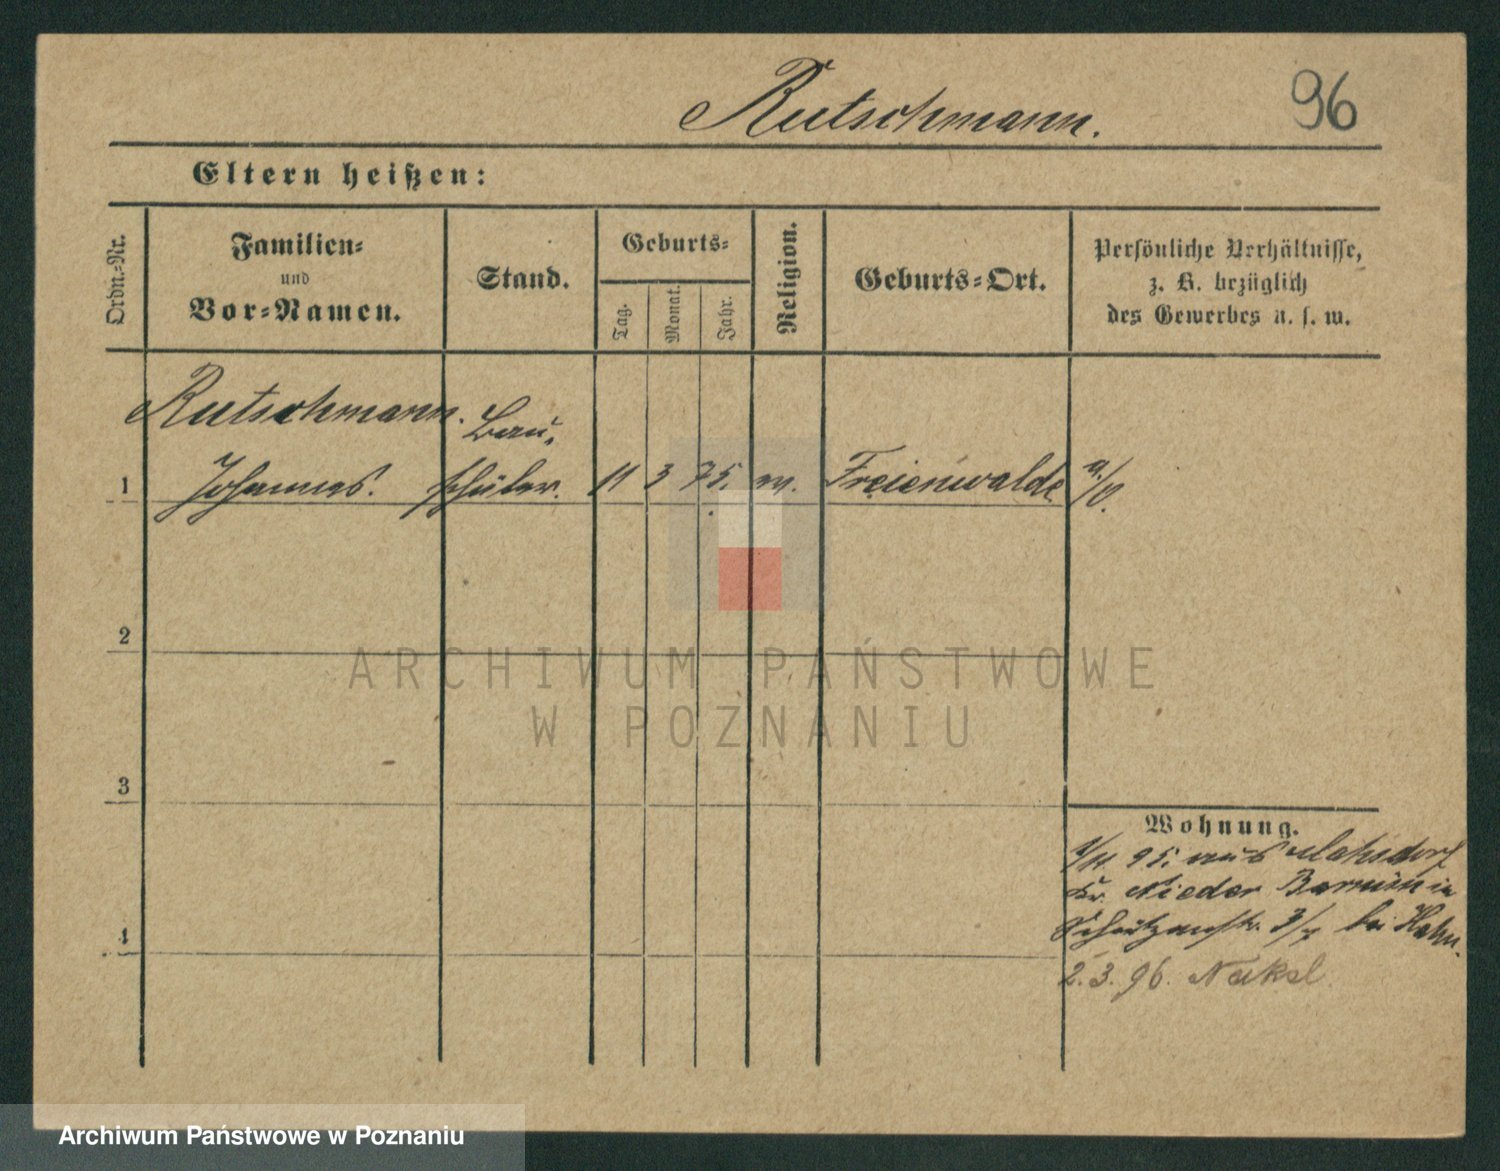 Rutschmann.
96
Eltern heißen:
Ordn.-Nr.
Familien-
und
Vor-Namen.
Stand.
Geburts-
Tag.
Monat.
Jahr.
Religion.
Geburts-Ort.
Persönliche Verhältnisse,
z. B. bezüglich
des Gewerbes u. s. w.
Rutschmann.
Bau-
1 Johannes. schüler. 11 3 75. ev. Freienwalde a/O.
2
ARCHIWUM PAŃSTWOWE
W POZNANIU
3
Wohnung.
1/11. 95. aus Mahlsdorf
Kr. Nieder Barnim in
Schützenstr. bei Hahn.
4
2.3.96. Nakel
Archiwum Państwowe w Poznaniu